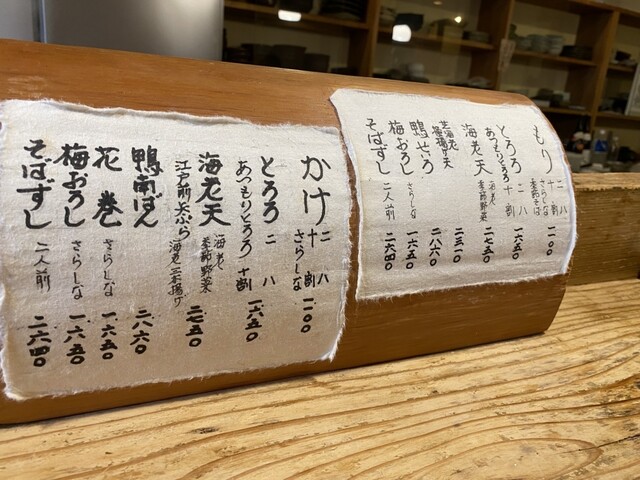 もり 二八
さらしな 十割
季節そば 一一〇〇
とろろ 二八
あつもりとろろ 十割 一六五〇
海老天 海老 季節野菜 二七五〇
芝海老 天 二三一〇
鴨せいろ 二八六〇
梅おろし さらしな 一六五〇
そばずし 二人前 二六四〇
かけ 二八
十割
さらしな 一一〇〇
とろろ 二八
あつもりとろろ 十割 一六五〇
海老天 海老 季節野菜 二七五〇
江戸前天ぷら 海老 揚げ
鴨南ばん 二八六〇
花巻 さらしな 一六五〇
梅おろし さらしな 一六五〇
そばずし 二人前 二六四〇